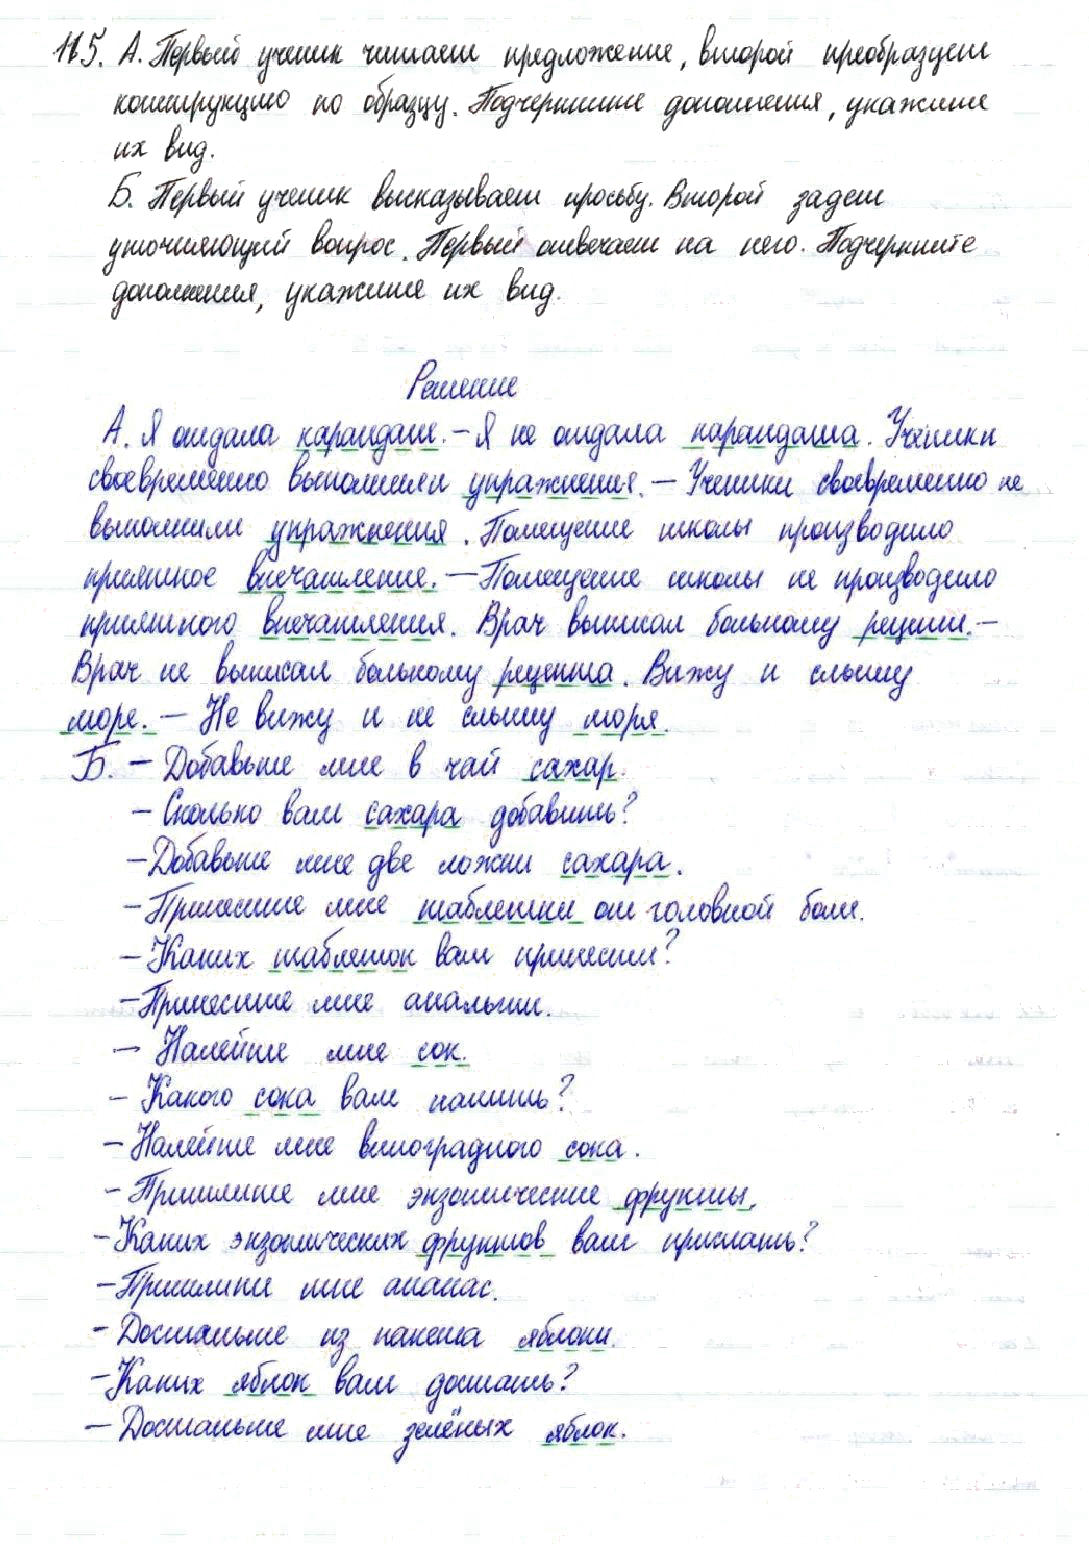 115. А. Первый ученик читает предложение, второй преобразует
конструкцию по образцу. Подчеркните дополнения, укажите
их вид.
Б. Первый ученик высказывает просьбу. Второй задает
уточняющий вопрос. Первый отвечает на него. Подчеркните
дополнения, укажите их вид.
Решение
А. Я отдала карандаш. – Я не отдала карандаша. Ученики
своевременно выполнили упражнения. – Ученики своевременно не
выполнили упражнения. Помещение школы производило
приятное впечатление. – Помещение школы не производило
приятного впечатления. Врач выписал больному рецепт. –
Врач не выписал больному рецепта. Вижу и слышу
море. – Не вижу и не слышу моря.
Б. – Добавьте мне в чай сахар.
– Сколько вам сахара добавить?
– Добавьте мне две ложки сахара.
– Принесите мне таблетки от головной боли.
– Каких таблеток вам принести?
– Принесите мне анальгин.
– Налейте мне сок.
– Какого сока вам налить?
– Налейте мне виноградного сока.
– Пришлите мне экзотические фрукты.
– Каких экзотических фруктов вам прислать?
– Пришлите мне ананас.
– Достаньте из пакета яблоки.
– Каких яблок вам достать?
– Достаньте мне зелёных яблок.